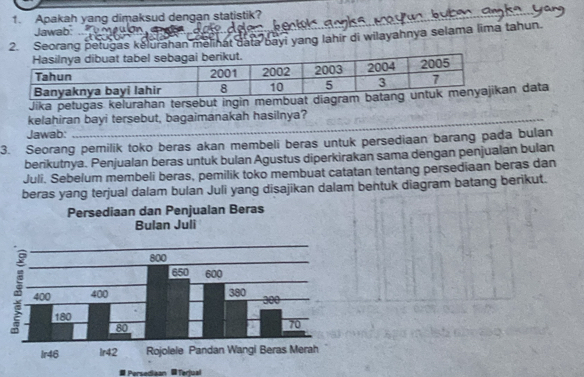 1. Apakah yang dimaksud dengan statistik?
Jawab: data dalam bentuk angka maupun bukan angka yang
2. Seorang petugas kelurahan melihat data bayi yang lahir di wilayahnya selama lima tahun.
Hasilnya dibuat tabel sebagai berikut.
Tahun 2001 2002 2003 2004 2005
Banyaknya bayi lahir 8 10 5 3 7
Jika petugas kelurahan tersebut ingin membuat diagram batang untuk menyajikan data
kelahiran bayi tersebut, bagaimanakah hasilnya?
Jawab:
3. Seorang pemilik toko beras akan membeli beras untuk persediaan barang pada bulan
berikutnya. Penjualan beras untuk bulan Agustus diperkirakan sama dengan penjualan bulan
Juli. Sebelum membeli beras, pemilik toko membuat catatan tentang persediaan beras dan
beras yang terjual dalam bulan Juli yang disajikan dalam bentuk diagram batang berikut.
Persediaan dan Penjualan Beras
Bulan Juli
Banyak Beras (kg)
800
650 600
400 400 380
300
180
80 70
Ir46 Ir42 Rojolele Pandan Wangi Beras Merah
Persediaan Terjual